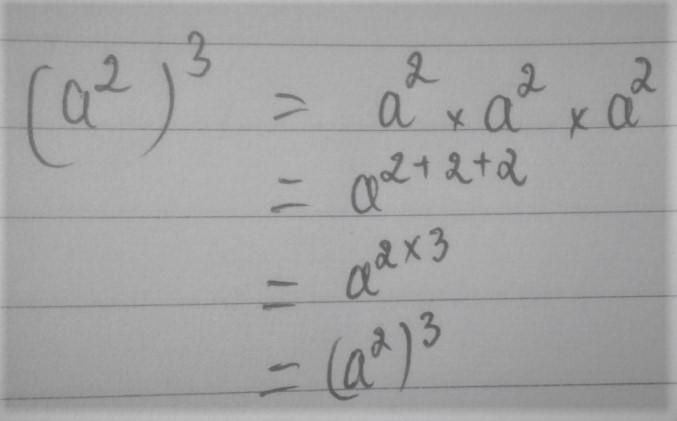 (a²)³ = a² × a² × a²
= a²⁺²⁺²
= a²ˣ³
= (a²)³